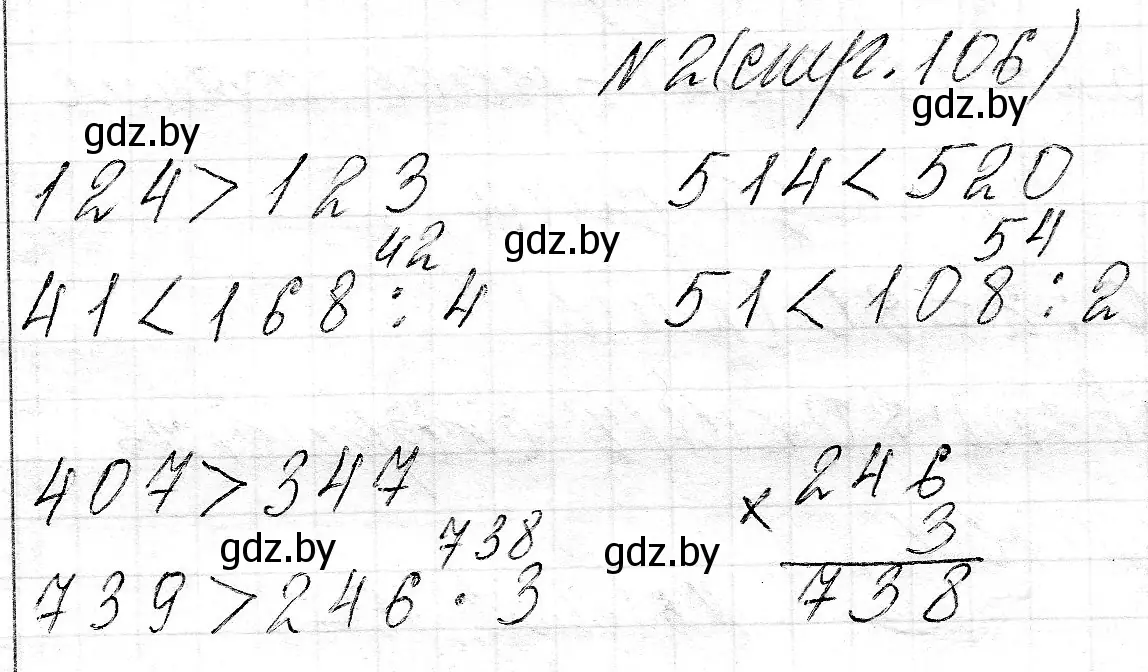 № 2 (стр. 106)
gdz.by gdz.by
124 > 123 514 < 520
42 gdz.by 54
41 < 168 : 4 51 < 108 : 2
407 > 347 × 246
738 3
gdz.by gdz.by
739 > 246 · 3 738